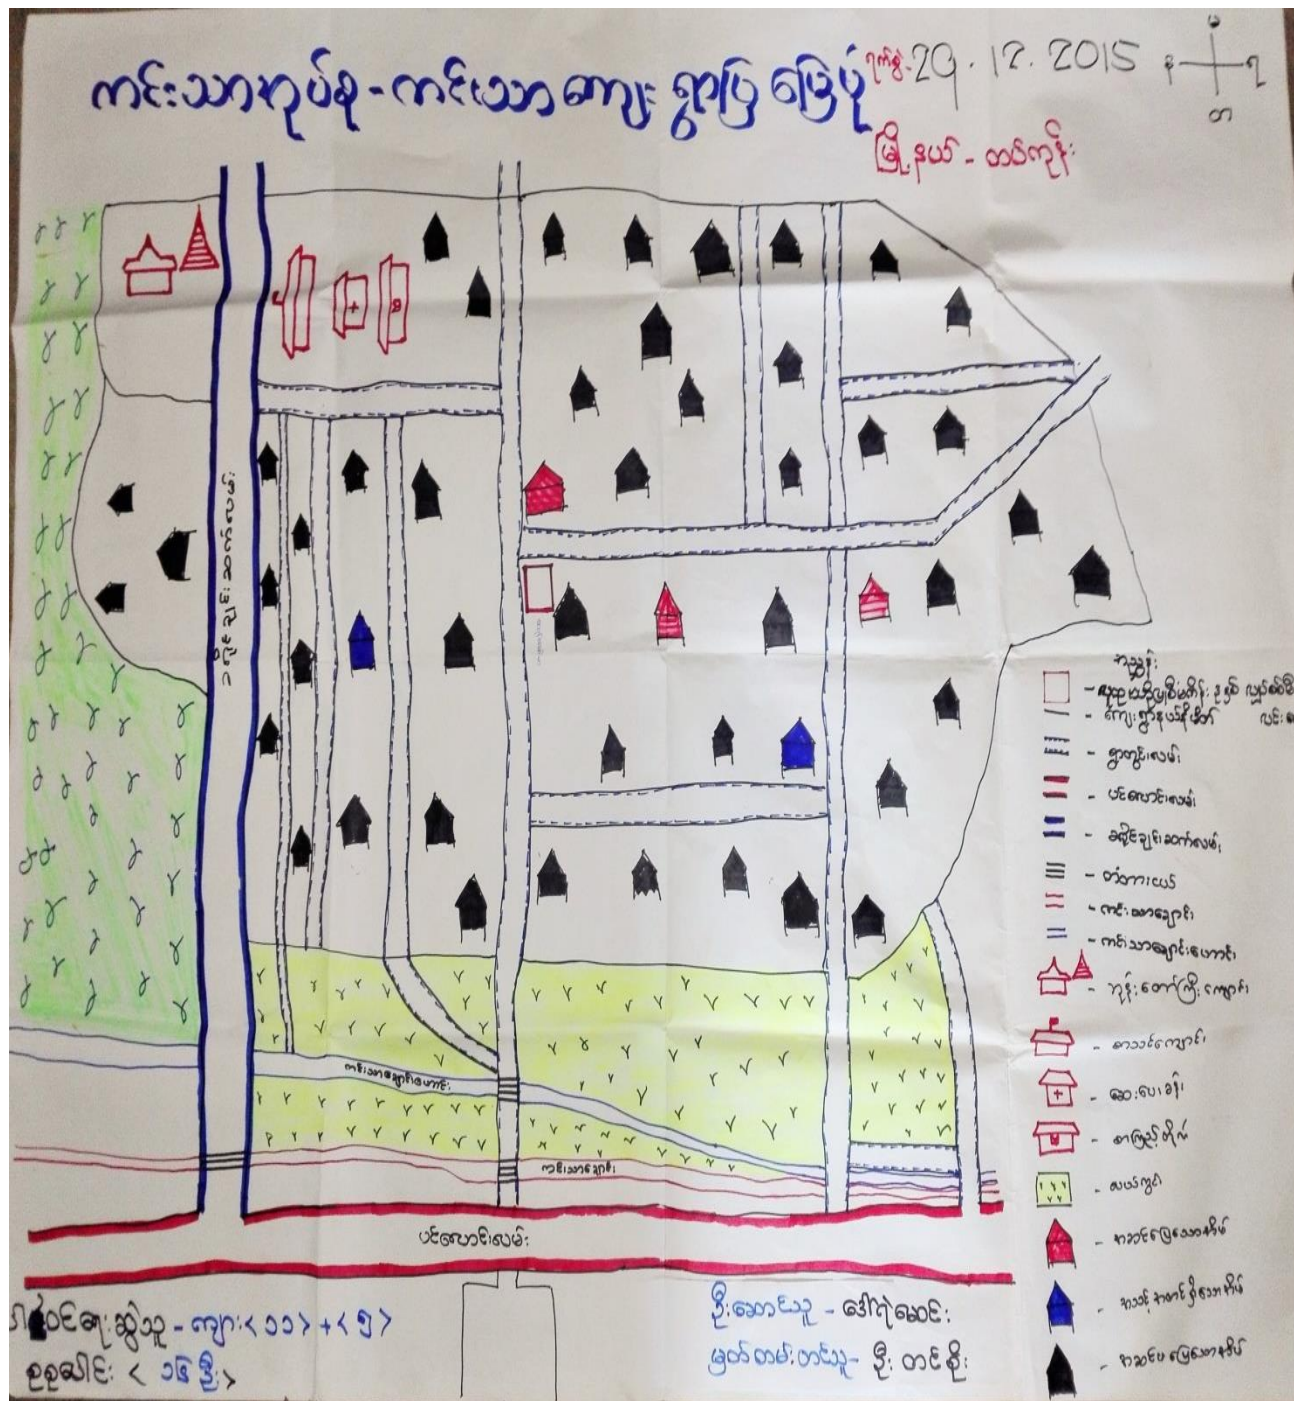 ကင်းသာအုပ်စု - ကင်းသာကျေးရွာပြမြေပုံ
ရက်စွဲ: 29.12.2015
မြို့နယ် - တပ်ကုန်း
မ
န
ရ
တ
ကင်းသာချောင်းဟောင်း
ကင်းသာချောင်း
ပင်လောင်းလမ်း
အညွှန်း
- ရွာတွင်းလမ်း
- ပင်လောင်းလမ်း
- ခရိုင်ချင်းဆက်လမ်း
- တံတားငယ်
- ကင်းသာချောင်း
- ကင်းသာချောင်းဟောင်း
- ဘုန်းတော်ကြီးကျောင်း
- စာသင်ကျောင်း
- ဆေးပေးခန်း
- စာကြည့်တိုက်
- လယ်ကွင်း
- အဆင်ပြေသောအိမ်
- အသင့်အတင့်ရှိသောအိမ်
- အဆင်မပြေသောအိမ်
ပါဝင်ရေးဆွဲသူ - ကျား<၁၁> + <၅>
စုစုပေါင်း <၁၆ ဦး>
ဦးဆောင်သူ - ဒေါ်ရဲမောင်း
မှတ်တမ်းတင်သူ - ဦးတင်စိုး